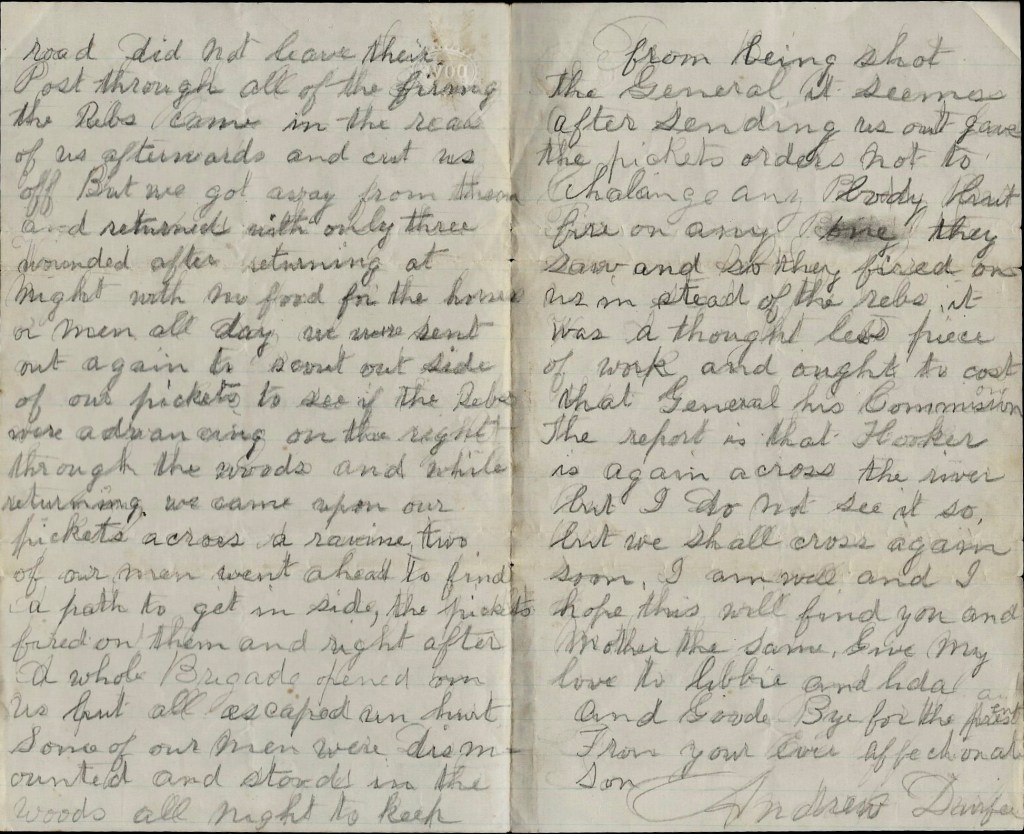 road did not leave their
Post through all of the firing
the Rebs came in the rear
of us afterwards and cut us
off But we got away from them
and returned with only three
wounded after returning at
night with no food for the horses
or men all day we were sent
out again to scout out side
of our pickets to see if the Rebs
were advancing on the right
through the woods and while
returning we came upon our
pickets across a ravine, two
of our men went ahead to find
a path to get in side, the pickets
fired on them and right after
A whole Brigade opened on
us but all escaped un hurt
Some of our men were dism-
ounted and stood in the
woods all night to keep
from being shot
the General it seemes
after sending us out gave
the pickets orders not to
Chalange any Boody but
fire on any one they
saw and so they fired on
us in stead of the rebs, it
was a thought less piece
of work and ought to cost
that General his Commision
The report is that Hooker
is again across the river
but I do not see it so,
but we shall cross again
soon, I am well and I
hope this will find you and
Mother the same, Give My
love to libbie and lida
and Goode Bye for the present
From your Ever affectionat
Son
Andrew